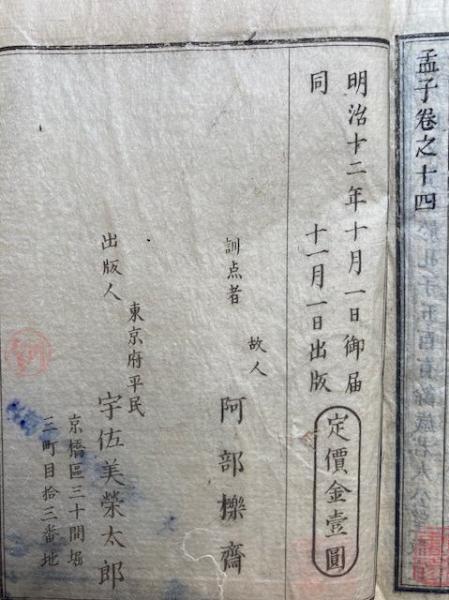 孟子卷之十四
明治十二年十月一日御届
同 十一月一日出版
定價金壹圓
故人
訓点者 阿部櫟齋
東京府平民
出版人 宇佐美榮太郎
京橋區三十間堀
三町目拾三番地